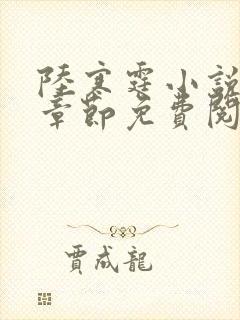 陸寒霆小說
章節免費閱
賈成龍